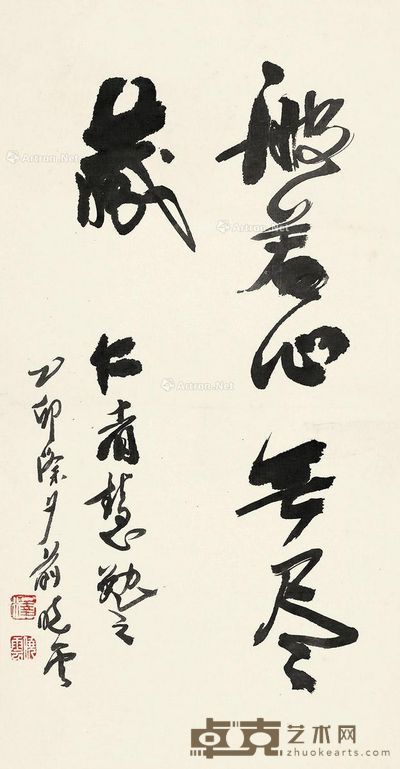 般若心无尽
藏
仁者慧勉之
丁卯除夕前晓云
Artron.Net
Artron.Net
Artron.Net
卓克艺术网
zhuokearts.com